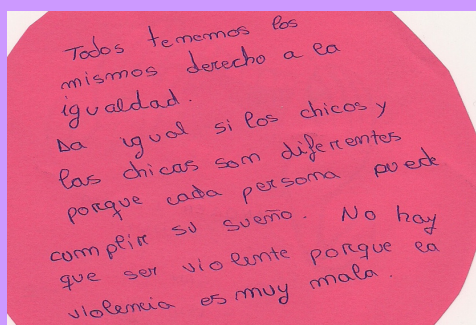 Todos tenemos los
mismos derecho a la
igualdad.
Da igual si los chicos y
las chicas son diferentes
porque cada persona puede
cumplir su sueño. No hay
que ser violente porque la
violencia es muy mala.